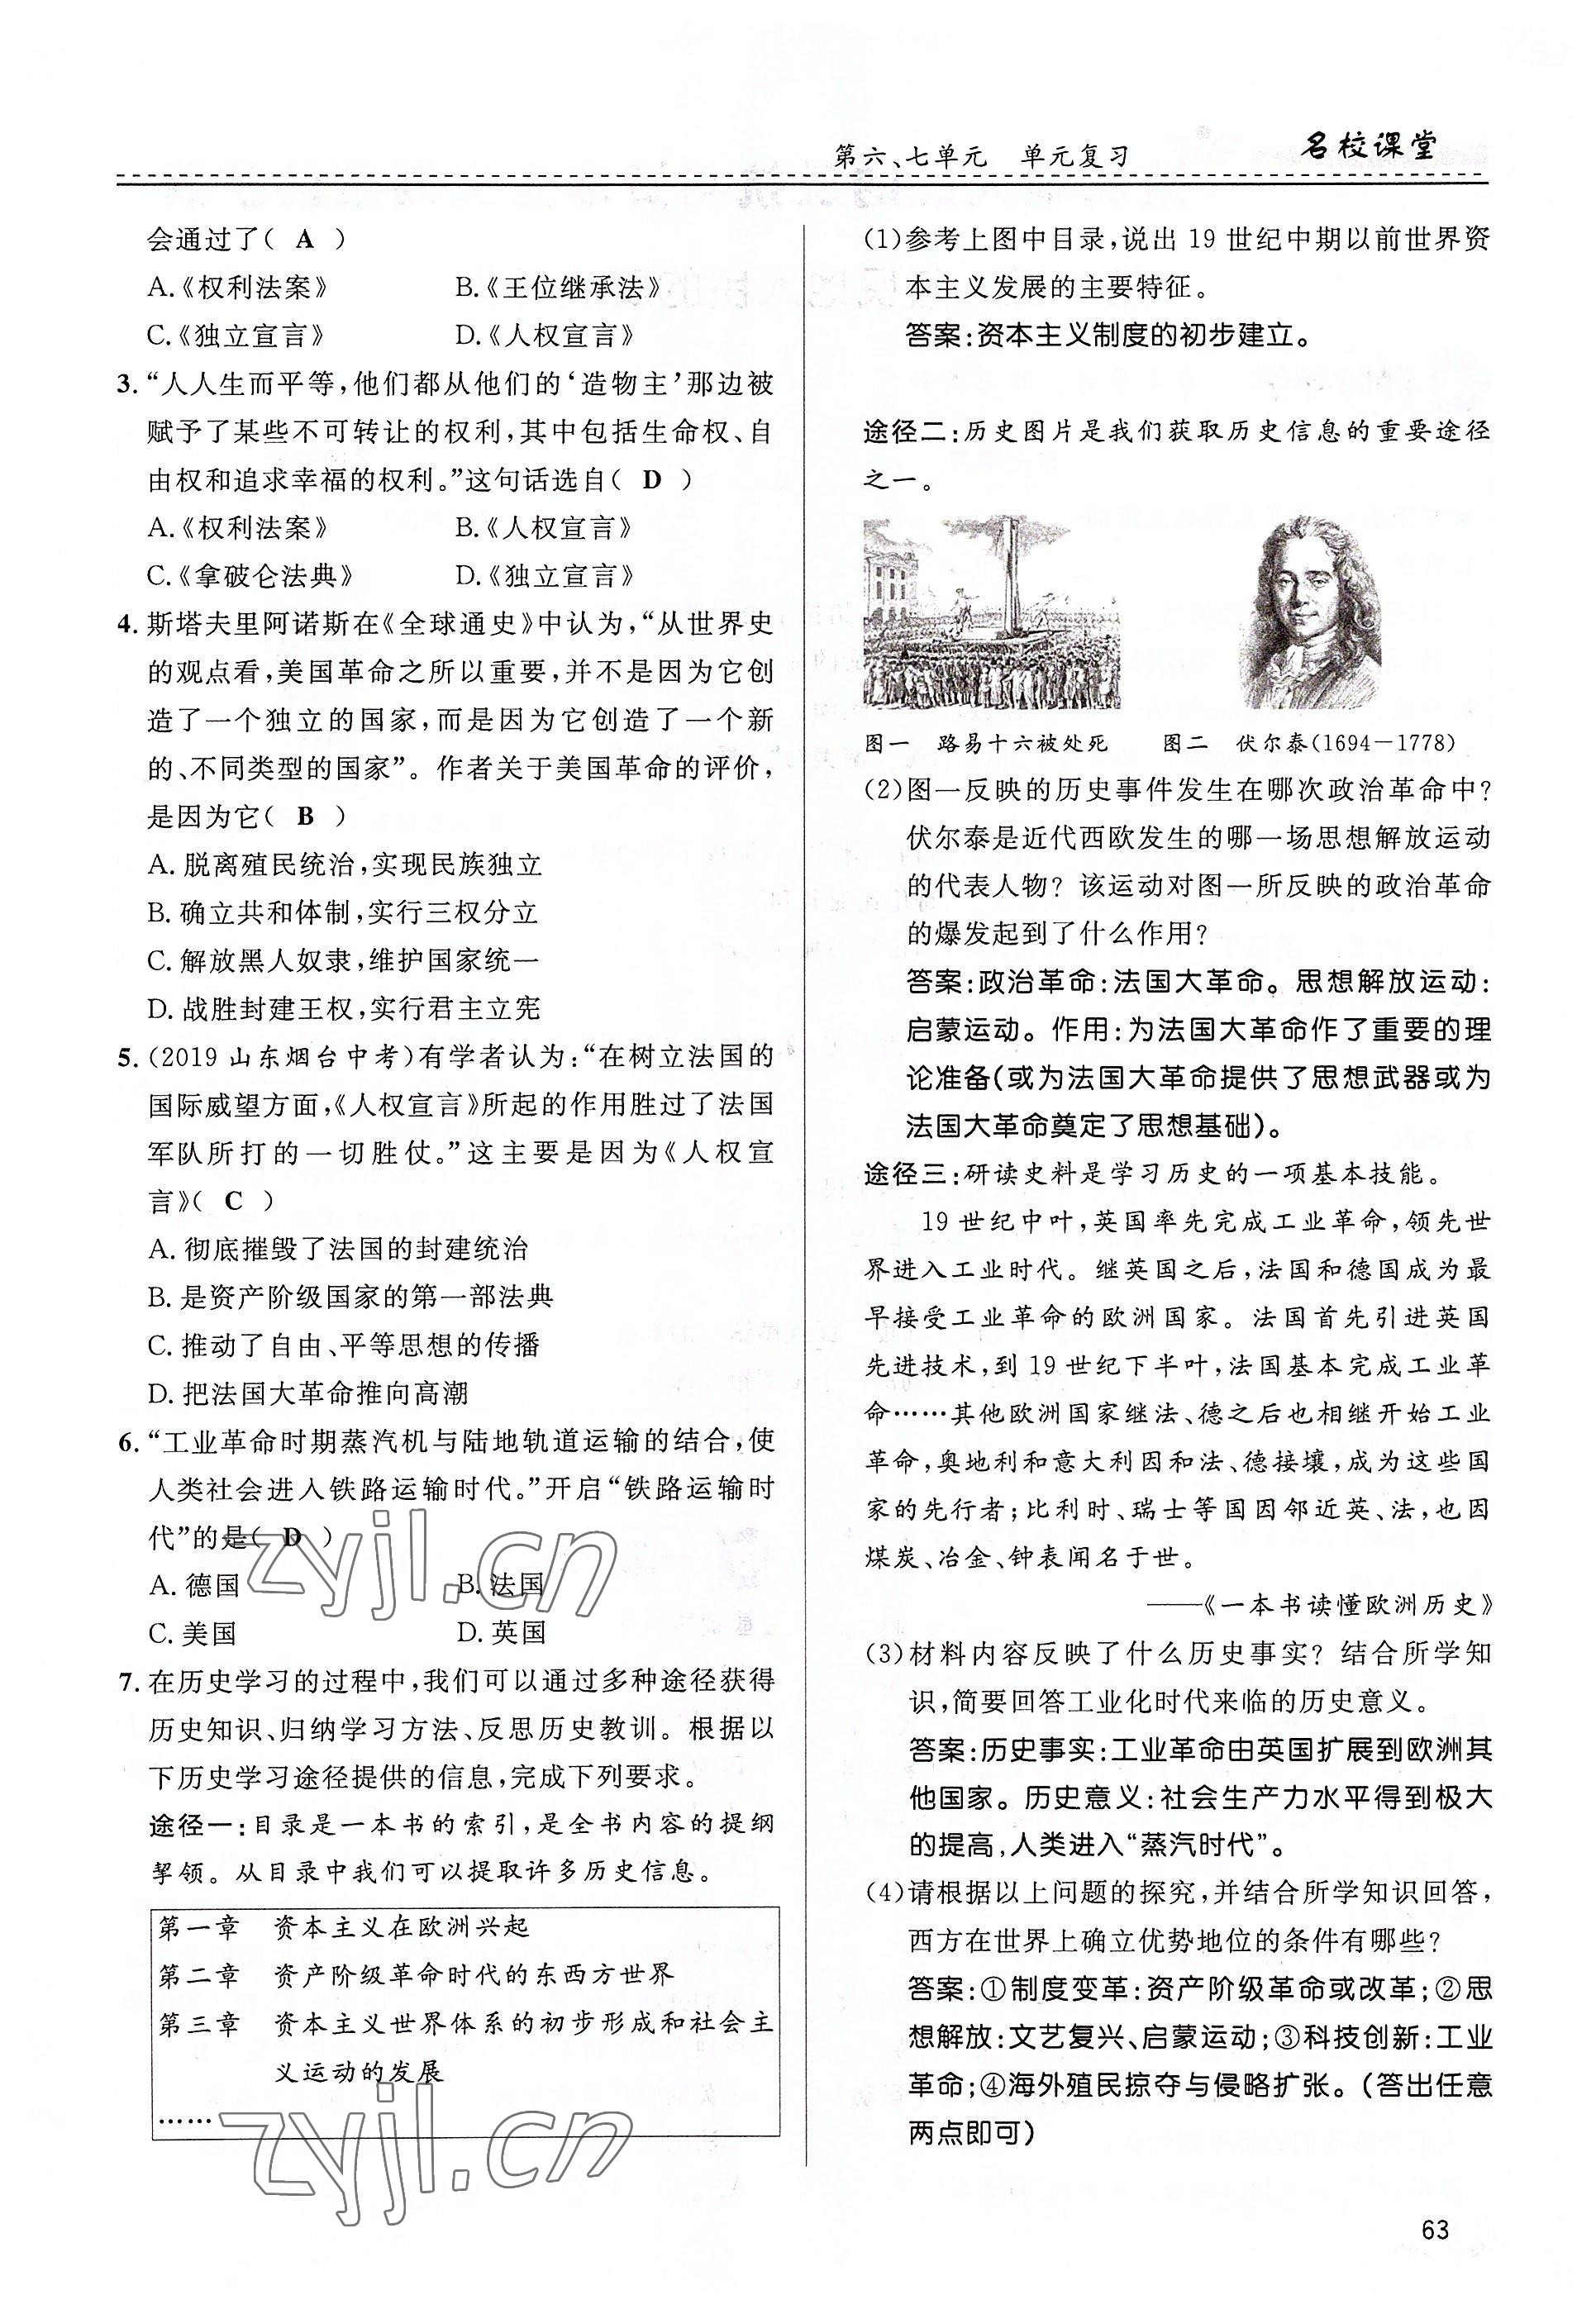 第六、七单元 单元复习 名校课堂
会通过了( A )
A.《权利法案》 B.《王位继承法》
C.《独立宣言》 D.《人权宣言》
3.“人人生而平等,他们都从他们的‘造物主’那边被
赋予了某些不可转让的权利,其中包括生命权、自
由权和追求幸福的权利。”这句话选自( D )
A.《权利法案》 B.《人权宣言》
C.《拿破仑法典》 D.《独立宣言》
4. 斯塔夫里阿诺斯在《全球通史》中认为,“从世界史
的观点看,美国革命之所以重要,并不是因为它创
造了一个独立的国家,而是因为它创造了一个新
的、不同类型的国家”。作者关于美国革命的评价,
是因为它( B )
A. 脱离殖民统治,实现民族独立
B. 确立共和体制,实行三权分立
C. 解放黑人奴隶,维护国家统一
D. 战胜封建王权,实行君主立宪
5.(2019 山东烟台中考)有学者认为:“在树立法国的
国际威望方面,《人权宣言》所起的作用胜过了法国
军队所打的一切胜仗。”这主要是因为《人权宣
言》( C )
A. 彻底摧毁了法国的封建统治
B. 是资产阶级国家的第一部法典
C. 推动了自由、平等思想的传播
D. 把法国大革命推向高潮
6.“工业革命时期蒸汽机与陆地轨道运输的结合,使
人类社会进入铁路运输时代。”开启“铁路运输时
代”的是( D )
A. 德国 B. 法国
C. 美国 D. 英国
7. 在历史学习的过程中,我们可以通过多种途径获得
历史知识、归纳学习方法、反思历史教训。根据以
下历史学习途径提供的信息,完成下列要求。
途径一:目录是一本书的索引,是全书内容的提纲
挈领。从目录中我们可以提取许多历史信息。
第一章 资本主义在欧洲兴起
第二章 资产阶级革命时代的东西方世界
第三章 资本主义世界体系的初步形成和社会主
义运动的发展
……
(1)参考上图中目录,说出 19 世纪中期以前世界资
本主义发展的主要特征。
答案:资本主义制度的初步建立。
途径二:历史图片是我们获取历史信息的重要途径
之一。
图一 路易十六被处死 图二 伏尔泰(1694—1778)
(2)图一反映的历史事件发生在哪次政治革命中?
伏尔泰是近代西欧发生的哪一场思想解放运动
的代表人物? 该运动对图一所反映的政治革命
的爆发起到了什么作用?
答案:政治革命:法国大革命。思想解放运动:
启蒙运动。作用:为法国大革命作了重要的理
论准备(或为法国大革命提供了思想武器或为
法国大革命奠定了思想基础)。
途径三:研读史料是学习历史的一项基本技能。
19 世纪中叶,英国率先完成工业革命,领先世
界进入工业时代。继英国之后,法国和德国成为最
早接受工业革命的欧洲国家。法国首先引进英国
先进技术,到 19 世纪下半叶,法国基本完成工业革
命……其他欧洲国家继法、德之后也相继开始工业
革命,奥地利和意大利因和法、德接壤,成为这些国
家的先行者;比利时、瑞士等国因邻近英、法,也因
煤炭、冶金、钟表闻名于世。
——《一本书读懂欧洲历史》
(3)材料内容反映了什么历史事实? 结合所学知
识,简要回答工业化时代来临的历史意义。
答案:历史事实:工业革命由英国扩展到欧洲其
他国家。历史意义:社会生产力水平得到极大
的提高,人类进入“蒸汽时代”。
(4)请根据以上问题的探究,并结合所学知识回答,
西方在世界上确立优势地位的条件有哪些?
答案:①制度变革:资产阶级革命或改革;②思
想解放:文艺复兴、启蒙运动;③科技创新:工业
革命;④海外殖民掠夺与侵略扩张。(答出任意
两点即可)
63
zyjl.cn
zyjl.cn